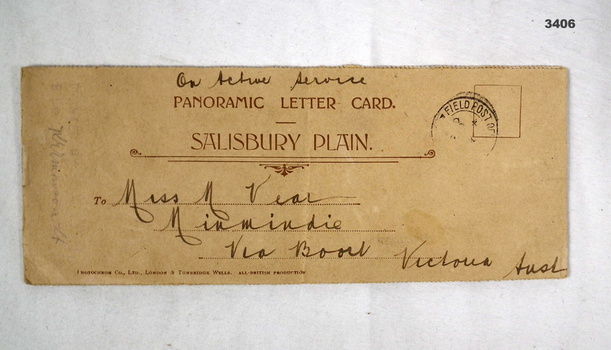 3406
On Active Service
PANORAMIC LETTER CARD.
SALISBURY PLAIN.
FIELD POST OF
To Miss M Vear
Minmindie
Via Boort Victoria Aust
PHOTOCHROM CO., LTD., LONDON & TUNBRIDGE WELLS. ALL-BRITISH PRODUCTION